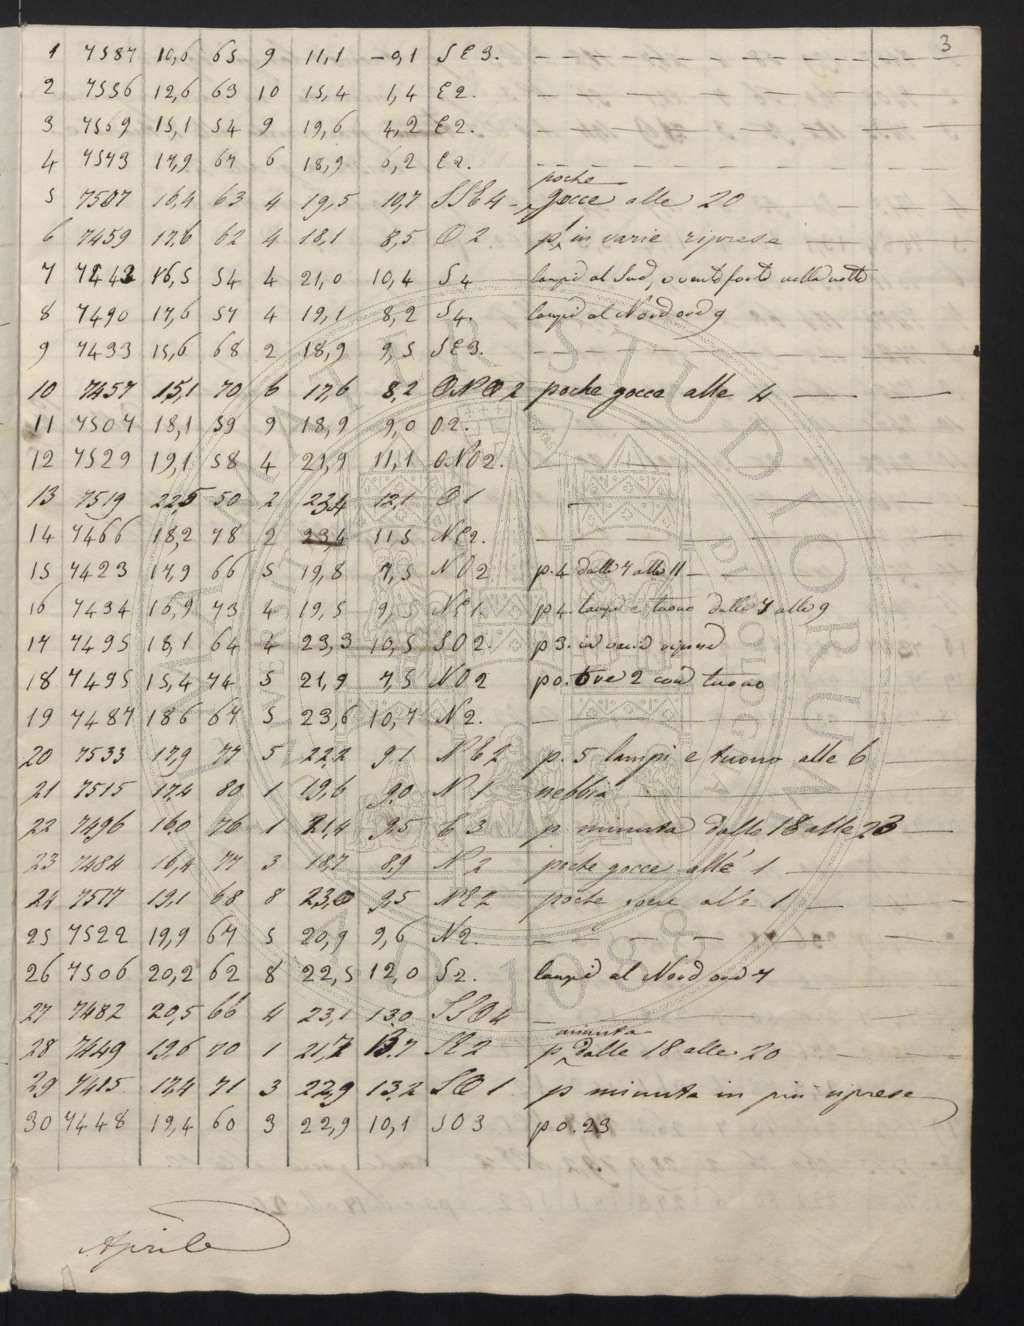 3
1 7587 10,6 65 9 11,1 – 9,1 SE3.
2 7556 12,6 63 10 15,4 1,4 E2.
3 7559 15,1 54 9 19,6 4,2 E2.
4 7573 17,9 67 6 18,9 6,2 E2.
poche
5 7507 16,4 63 4 19,5 10,7 SSE4 gocce alle 20
6 7459 17,6 62 4 18,1 8,5 O2 p. in varie riprese
7 7242 16,5 54 4 21,0 10,4 S4 lampi al Sud, e vento forte nella notte
8 7490 17,6 57 4 19,1 8,2 S4. lampi al Nord ore 9
9 7433 15,6 68 2 18,9 9,5 SE3.
10 7457 15,1 70 6 17,6 8,2 ONO2 poche gocce alle 4
11 7507 18,1 59 9 18,9 9,0 O2.
12 7529 19,1 58 4 21,9 11,1 ONO2.
13 7519 22,5 50 2 23,4 12,1 O1
14 7466 18,2 78 2 23,4 11,5 NE2.
15 7423 17,9 66 5 19,8 7,5 NO2 p.4 dalle 7 alle 11
16 7434 16,9 73 4 19,5 9,5 NE1 p4. lampi e tuono dalle 7 alle 9
17 7495 18,1 64 4 23,3 10,5 SO2. p3. in varie riprese
18 7495 15,4 74 5 21,9 7,5 NO2 p0. ore 2 con tuono
19 7487 18,6 67 5 23,6 10,7 N2.
20 7533 17,9 77 5 22,2 9,1 NE2 p. 5 lampi e tuono alle 6
21 7515 17,4 80 1 19,6 9,0 N1 nebbia
22 7496 16,0 76 1 21,4 9,5 E3 p. minuta dalle 18 alle 23
23 7484 16,4 77 3 18,7 8,9 N2 poche gocce alle 1
24 7517 19,1 68 8 23,0 9,5 NE2 poche alle 1
25 7522 19,9 67 5 20,9 9,6 N2.
26 7506 20,2 62 8 22,5 12,0 S2. lampi al Nord ore 7
27 7482 20,5 66 4 23,1 13,0 SSO4
minuta
28 7449 19,6 70 1 21,7 13,7 SE2 p. dalle 18 alle 20
29 7415 17,4 71 3 22,9 13,2 SO1 p minuta in più riprese
30 7448 19,4 60 3 22,9 10,1 SO3 p0.23
Aprile